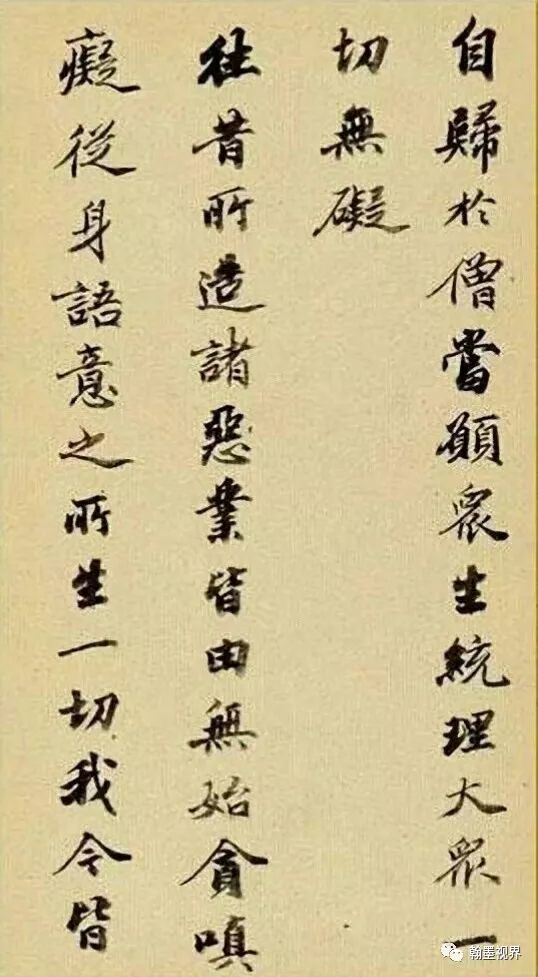 自歸於僧當願衆生統理大衆一
切無礙
往昔所造諸惡業皆由無始貪嗔
癡從身語意之所生一切我今皆
翰墨视界